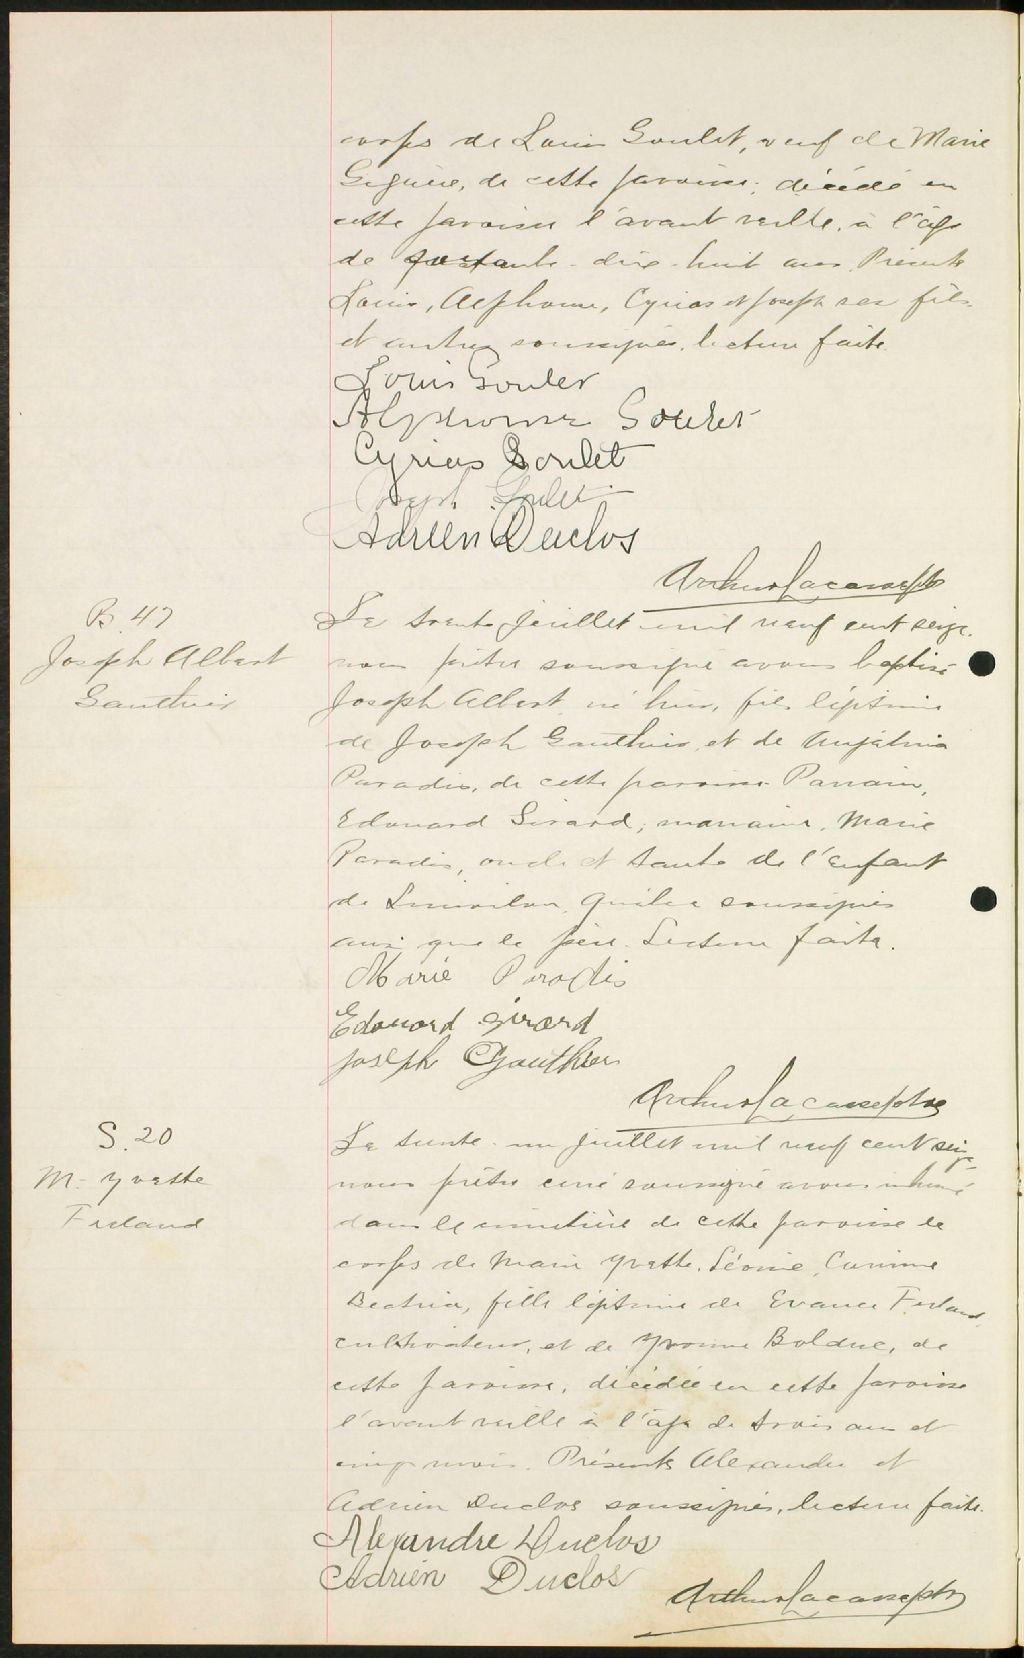 corps de Louis Goulet, veuf de Marie
Giguère, de cette paroisse, décédé en
cette paroisse l'avant veille, à l'âge
de soixante-dix-huit ans. Présents
Louis, Alphonse, Cyrias et Joseph ses fils
et autres soussignés, lecture faite.
Louis Goulet
Alphonse Goulet
Cyrias Goulet
Joseph Goulet
Adrien Duclos
Arthur Lacasse ptre
B. 47
Joseph Albert
Gauthier
Le trente juillet mil neuf cent seize
nous prêtre soussigné avons baptisé
Joseph Albert, né hier, fils légitime
de Joseph Gauthier, et de
Paradis, de cette paroisse. Parrain,
Edouard Girard, marraine, Marie
Paradis, oncle et tante de l'enfant
de Limoilou, Québec soussignés
ainsi que le père. Lecture faite.
Marie Paradis
Edouard Girard
Joseph Gauthier
Arthur Lacasse ptre
S. 20
M.-Yvette
Ferland
Le trente-un juillet mil neuf cent seize
nous prêtre curé soussigné avons inhumé
dans le cimetière de cette paroisse le
corps de Marie Yvette, Léonie, Corinne
Beatrice, fille légitime de Evance Ferland,
cultivateur, et de Yvonne Bolduc, de
cette paroisse, décédée en cette paroisse
l'avant veille à l'âge de trois ans et
cinq mois. Présents Alexandre et
Adrien Duclos soussignés, lecture faite.
Alexandre Duclos
Adrien Duclos
Arthur Lacasse ptre